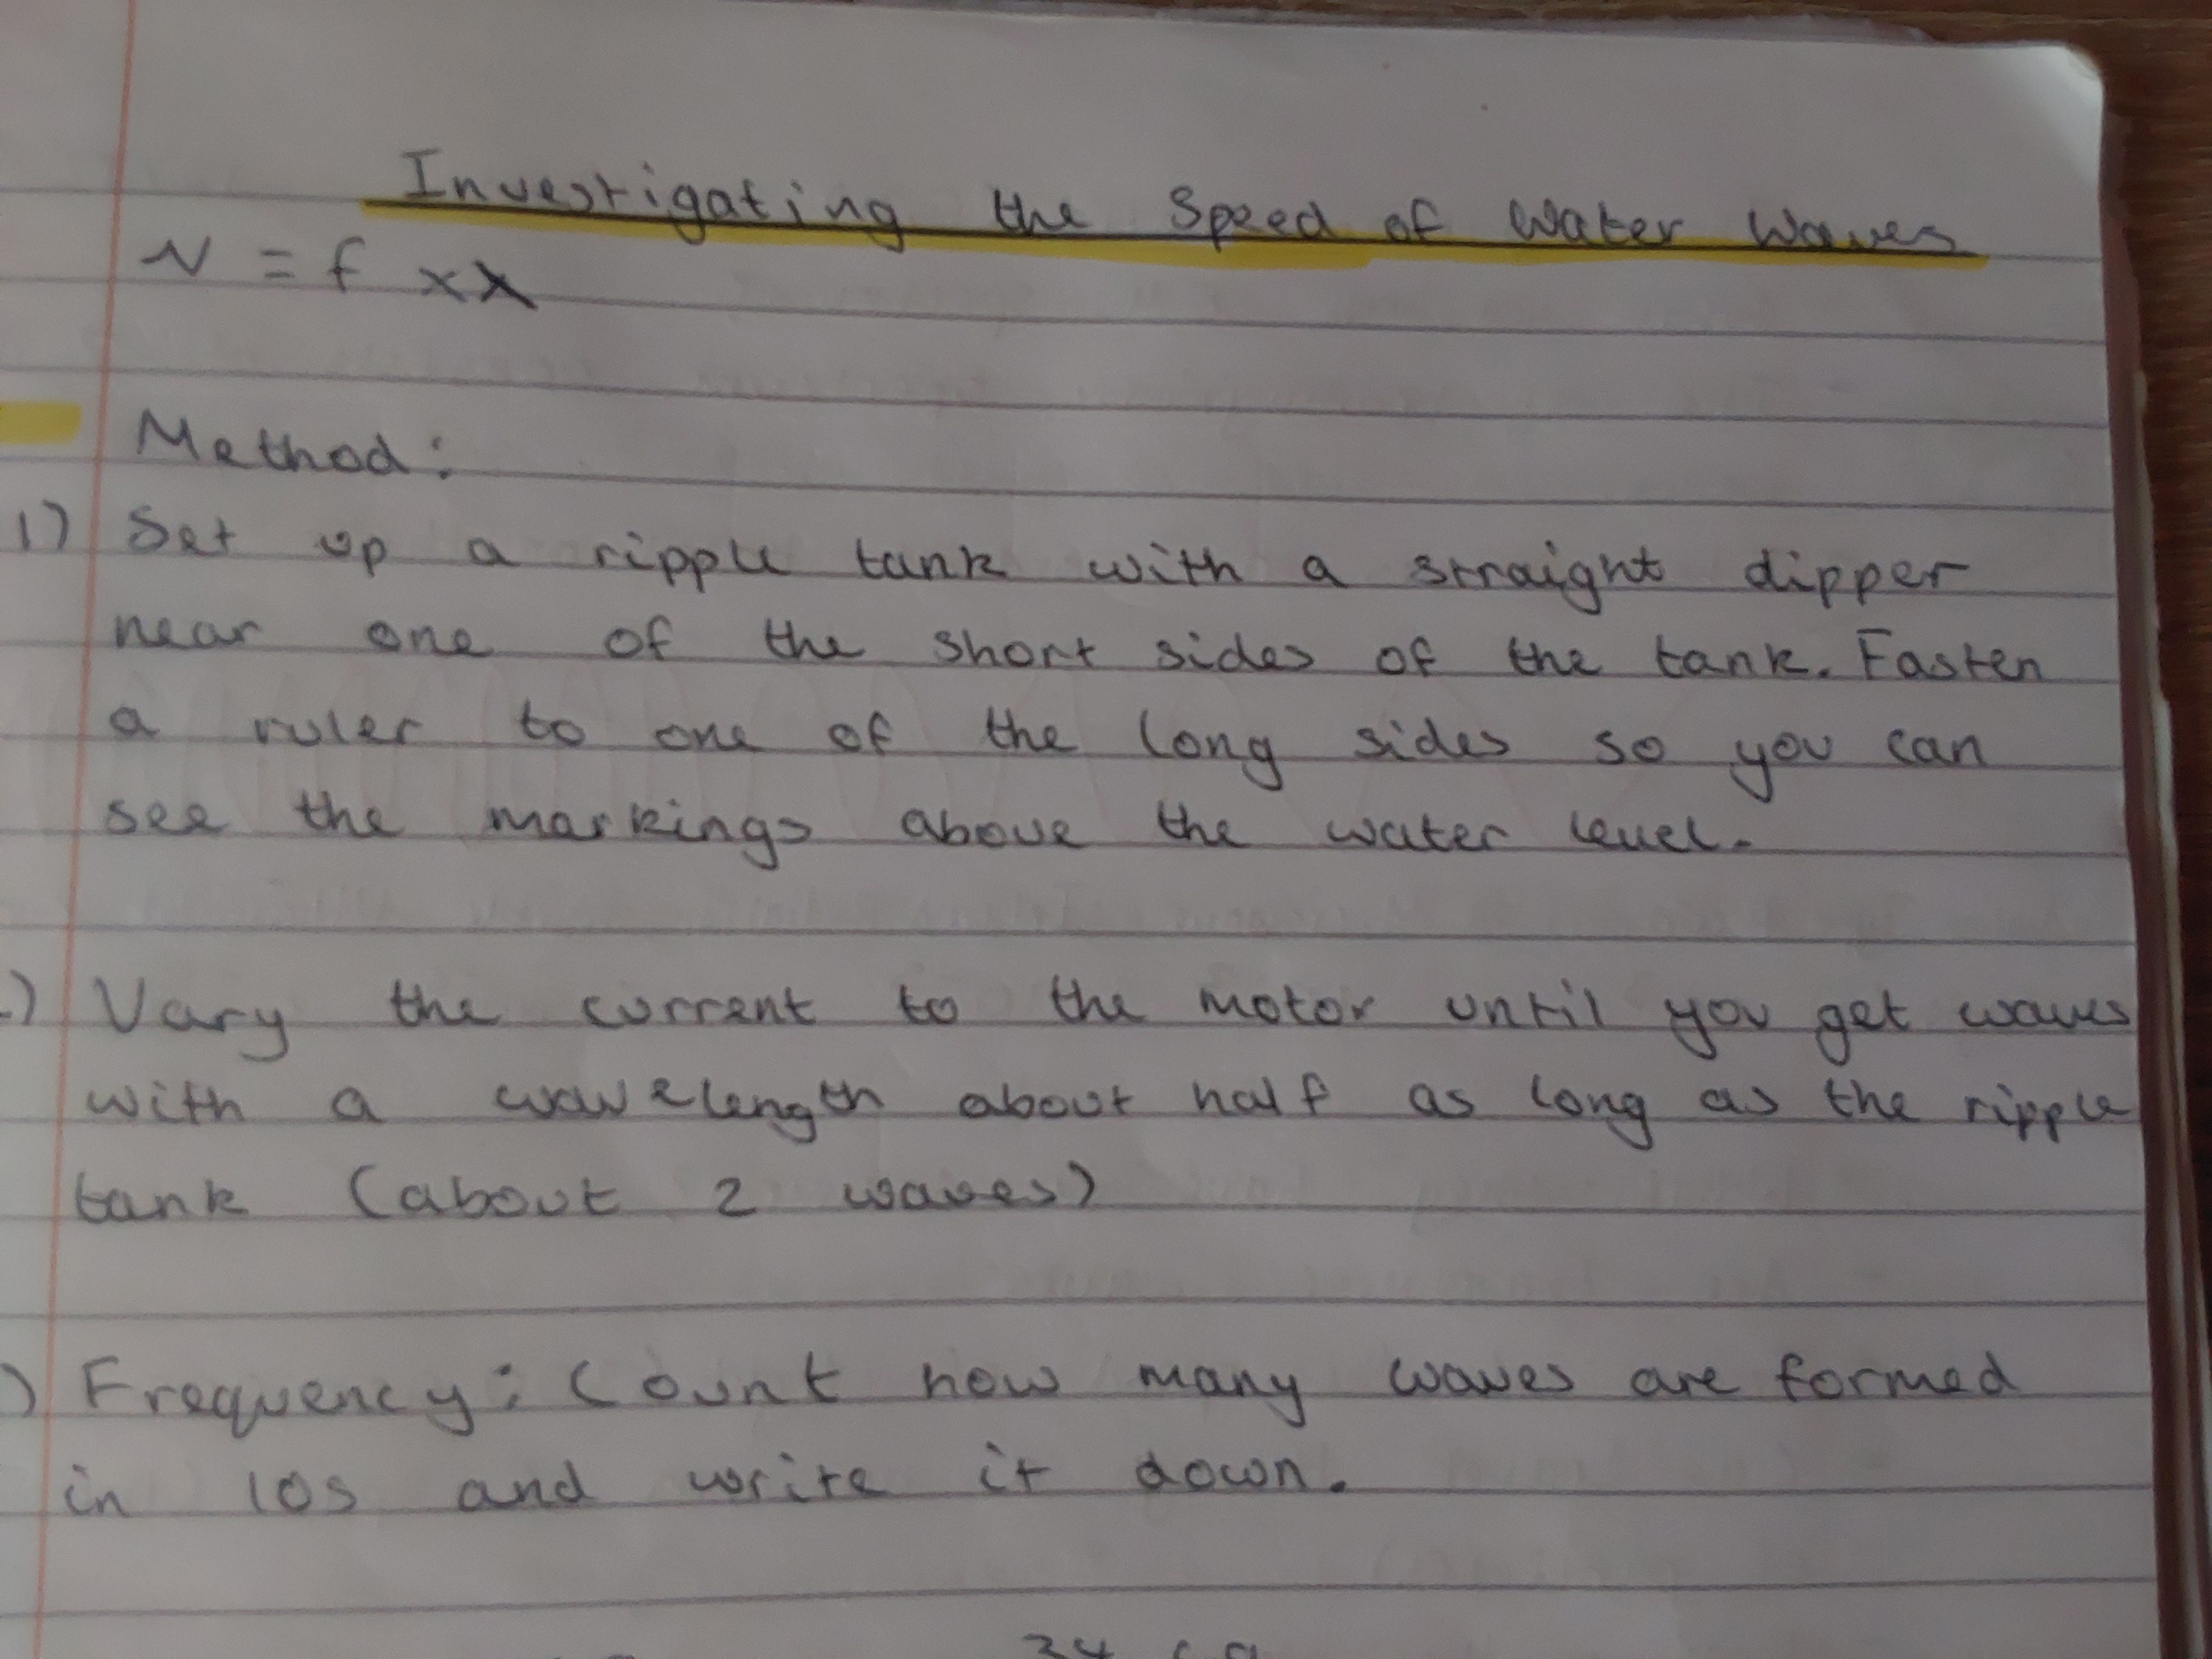 Investigating the Speed of Water Waves
v = f x λ
Method:
1) Set up a ripple tank with a straight dipper
near one of the short sides of the tank. Fasten
a ruler to one of the long sides so you can
see the markings above the water level.
) Vary the current to the motor until you get waves
with a wavelength about half as long as the ripple
tank (about 2 waves)
) Frequency: Count how many waves are formed
in 10s and write it down.